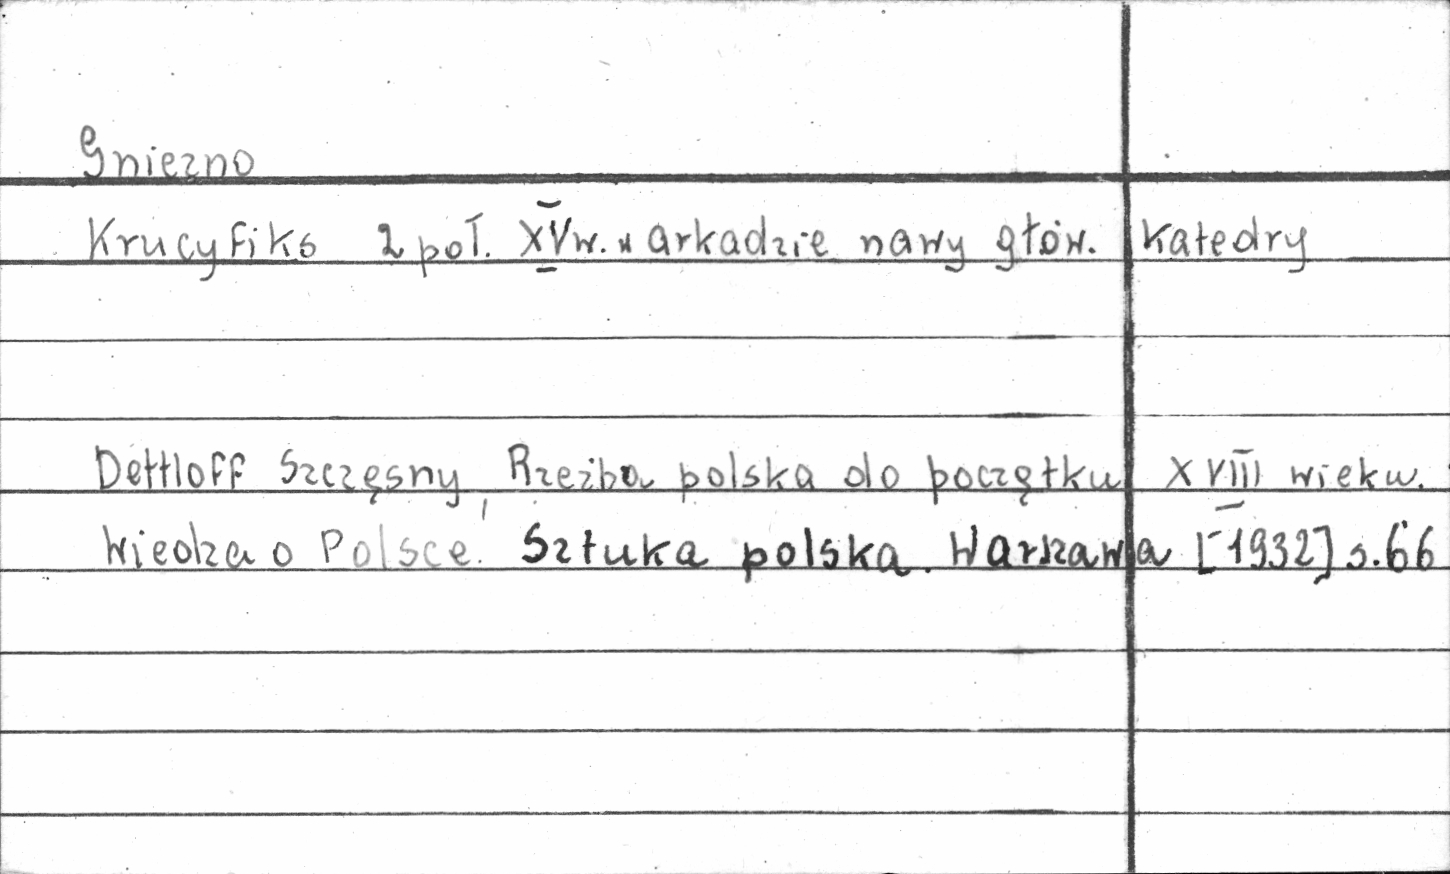 Gniezno
Krucyfiks 2 poł. XV w. w arkadzie nawy głów. Katedry
Dettloff Szczęsny, Rzeźba polska do początku XVIII wieku.
Wiedza o Polsce. Sztuka polska. Warszawa [1932] s. 66